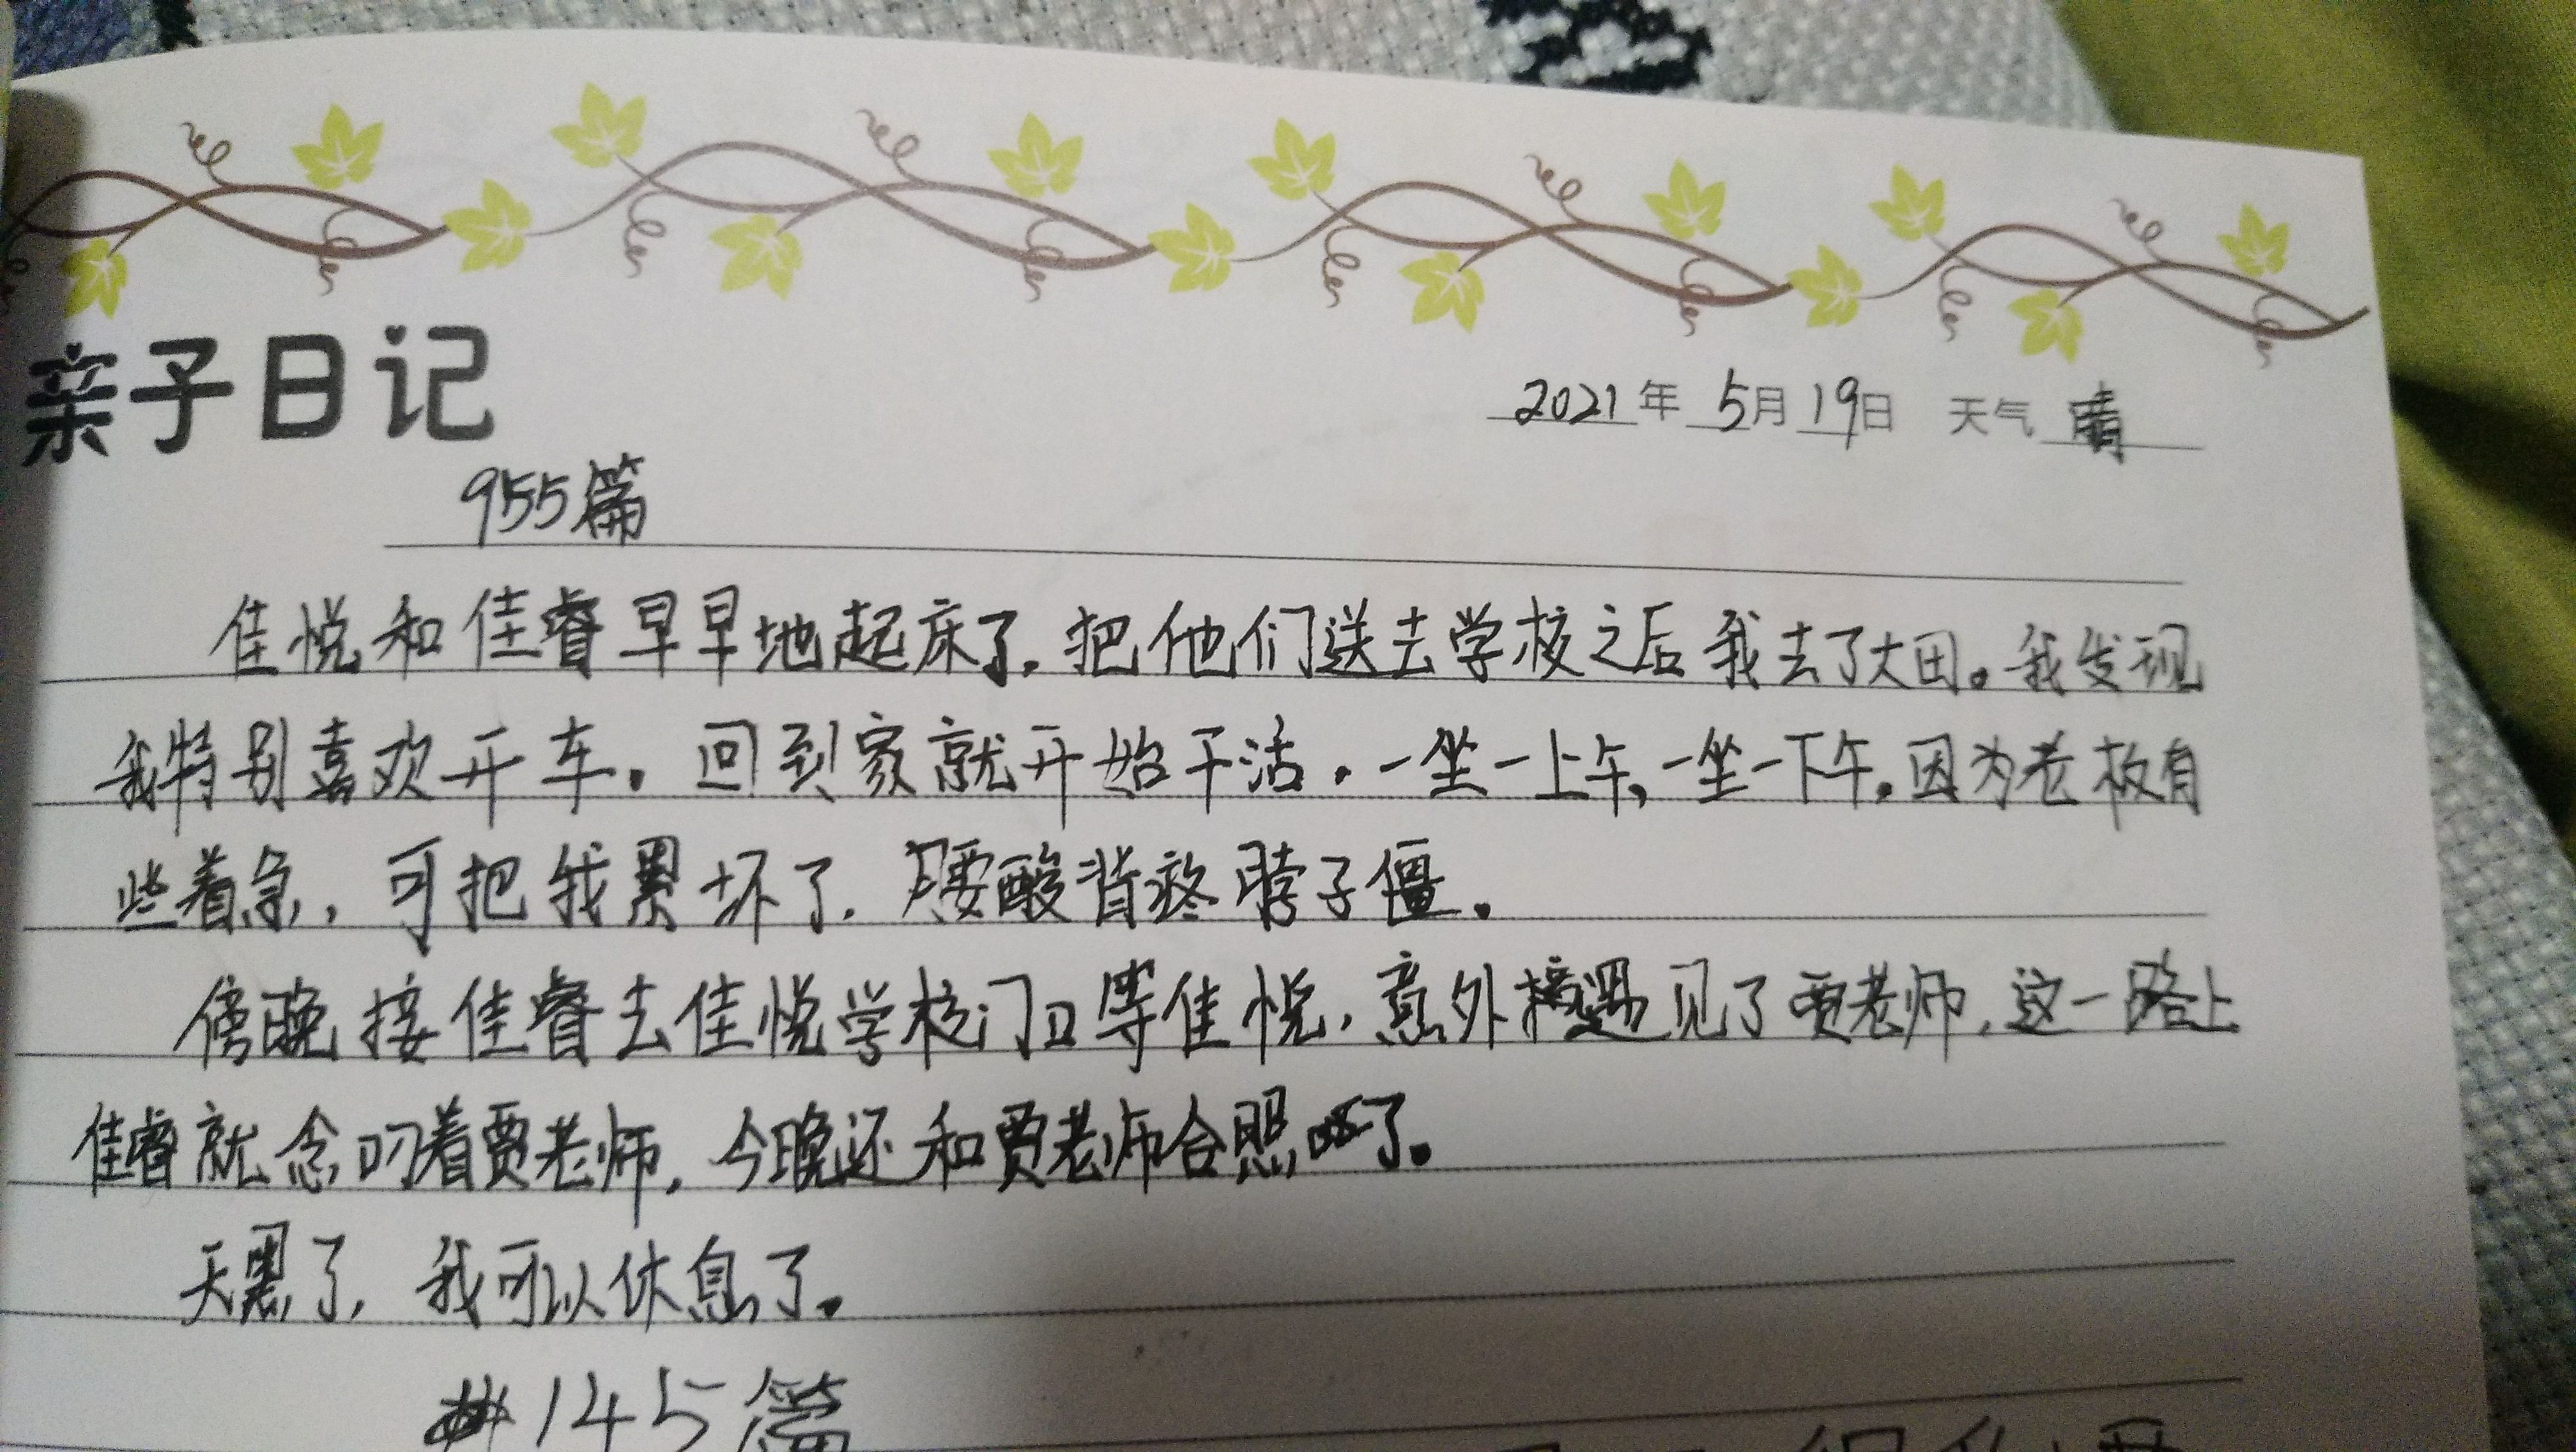 亲子日记
2021年 5月19日 天气 晴
955篇
佳悦和佳睿早早地起床了.把他们送去学校之后我去了大田。我发现
我特别喜欢开车。回到家就开始干活.一坐一上午,一坐一下午.因为老板有
些着急,可把我累坏了.腰酸背疼脖子僵。
傍晚接佳睿去佳悦学校门口等佳悦,意外遇见了贾老师,这一路上
佳睿就念叨着贾老师,今晚还和贾老师合照了。
天黑了,我可以休息了。
145篇